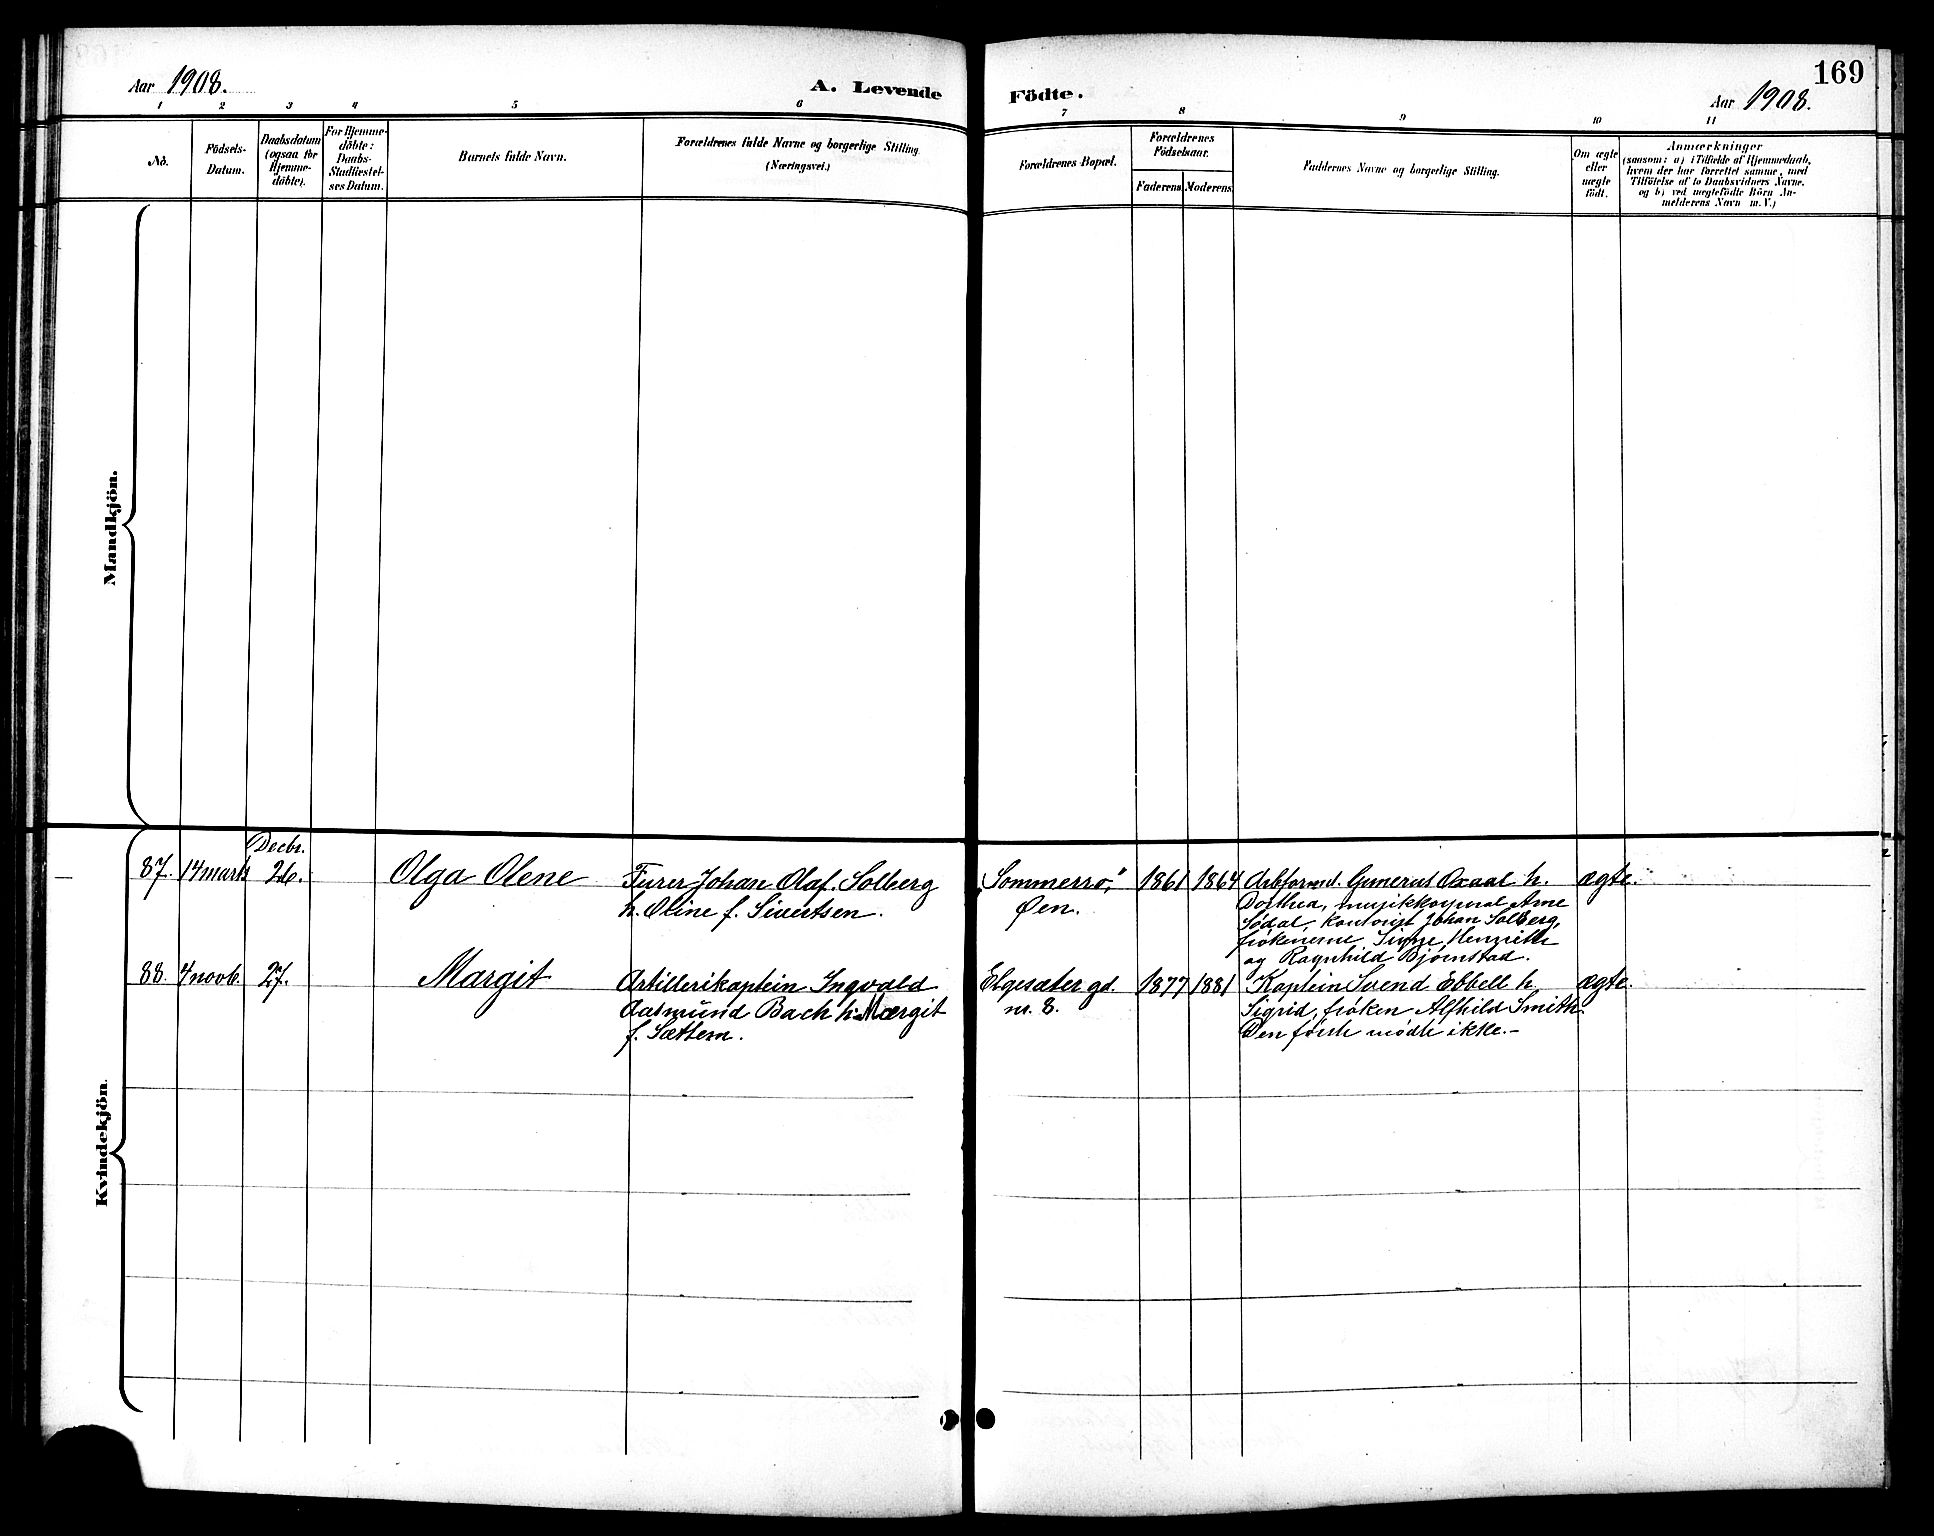 169
Aar 1908.
A. Levende Födte.
Aar 1908.
1 2 3 4 5 6 7 8 9 10 11
No.
Födsels-Datum.
Daabsdatum (ogsaa for Hjemme-döbte).
For Hjemme-döbte: Daabs-Stadfæstel-ses Datum.
Barnets fulde Navn.
Forældrenes fulde Navne og borgerlige Stilling
(Næringsvei.)
Forældrenes Bopæl.
Forældrenes Födselsaar.
Faderens
Moderens
Faddernes Navne og borgerlige Stilling.
Om ægte eller uægte födt.
Anmærkninger
(saasom: a) i Tilfælde af Hjemmedaab,
hvem der har forrettet samme, med
Tilföielse af to Daabsvidners Navne.
og b) ved uægtefödte Börn An-
melderens Navn m. V.)
Mandkjön.
Kvindekjön.
Decbr.
87. 14 marts 26. Olga Olene
Furer Johan Olaf Solberg
h. Oline f. Sivertsen.
"Sommerro,"
Øen.
1861 1864
Arbformd. Gunerus Oxaal h.
Dorthea, musikkorporal Arne
Sødal, kontorist Johan Solberg,
frøkenerne Signe, Henriette
og Ragnhild Bjørnstad.
ægte.
88. 4 novb. 27. Margit
Artillerikaptein Ingvald
Aasmund Bach h. Margit
f. Sættem.
Elgesæter gd.
nr. 8.
1877 1881
Kaptein Svend Ebbell h.
Sigrid, frøken Alfhild Smith.
Den første mødte ikke.-
ægte.